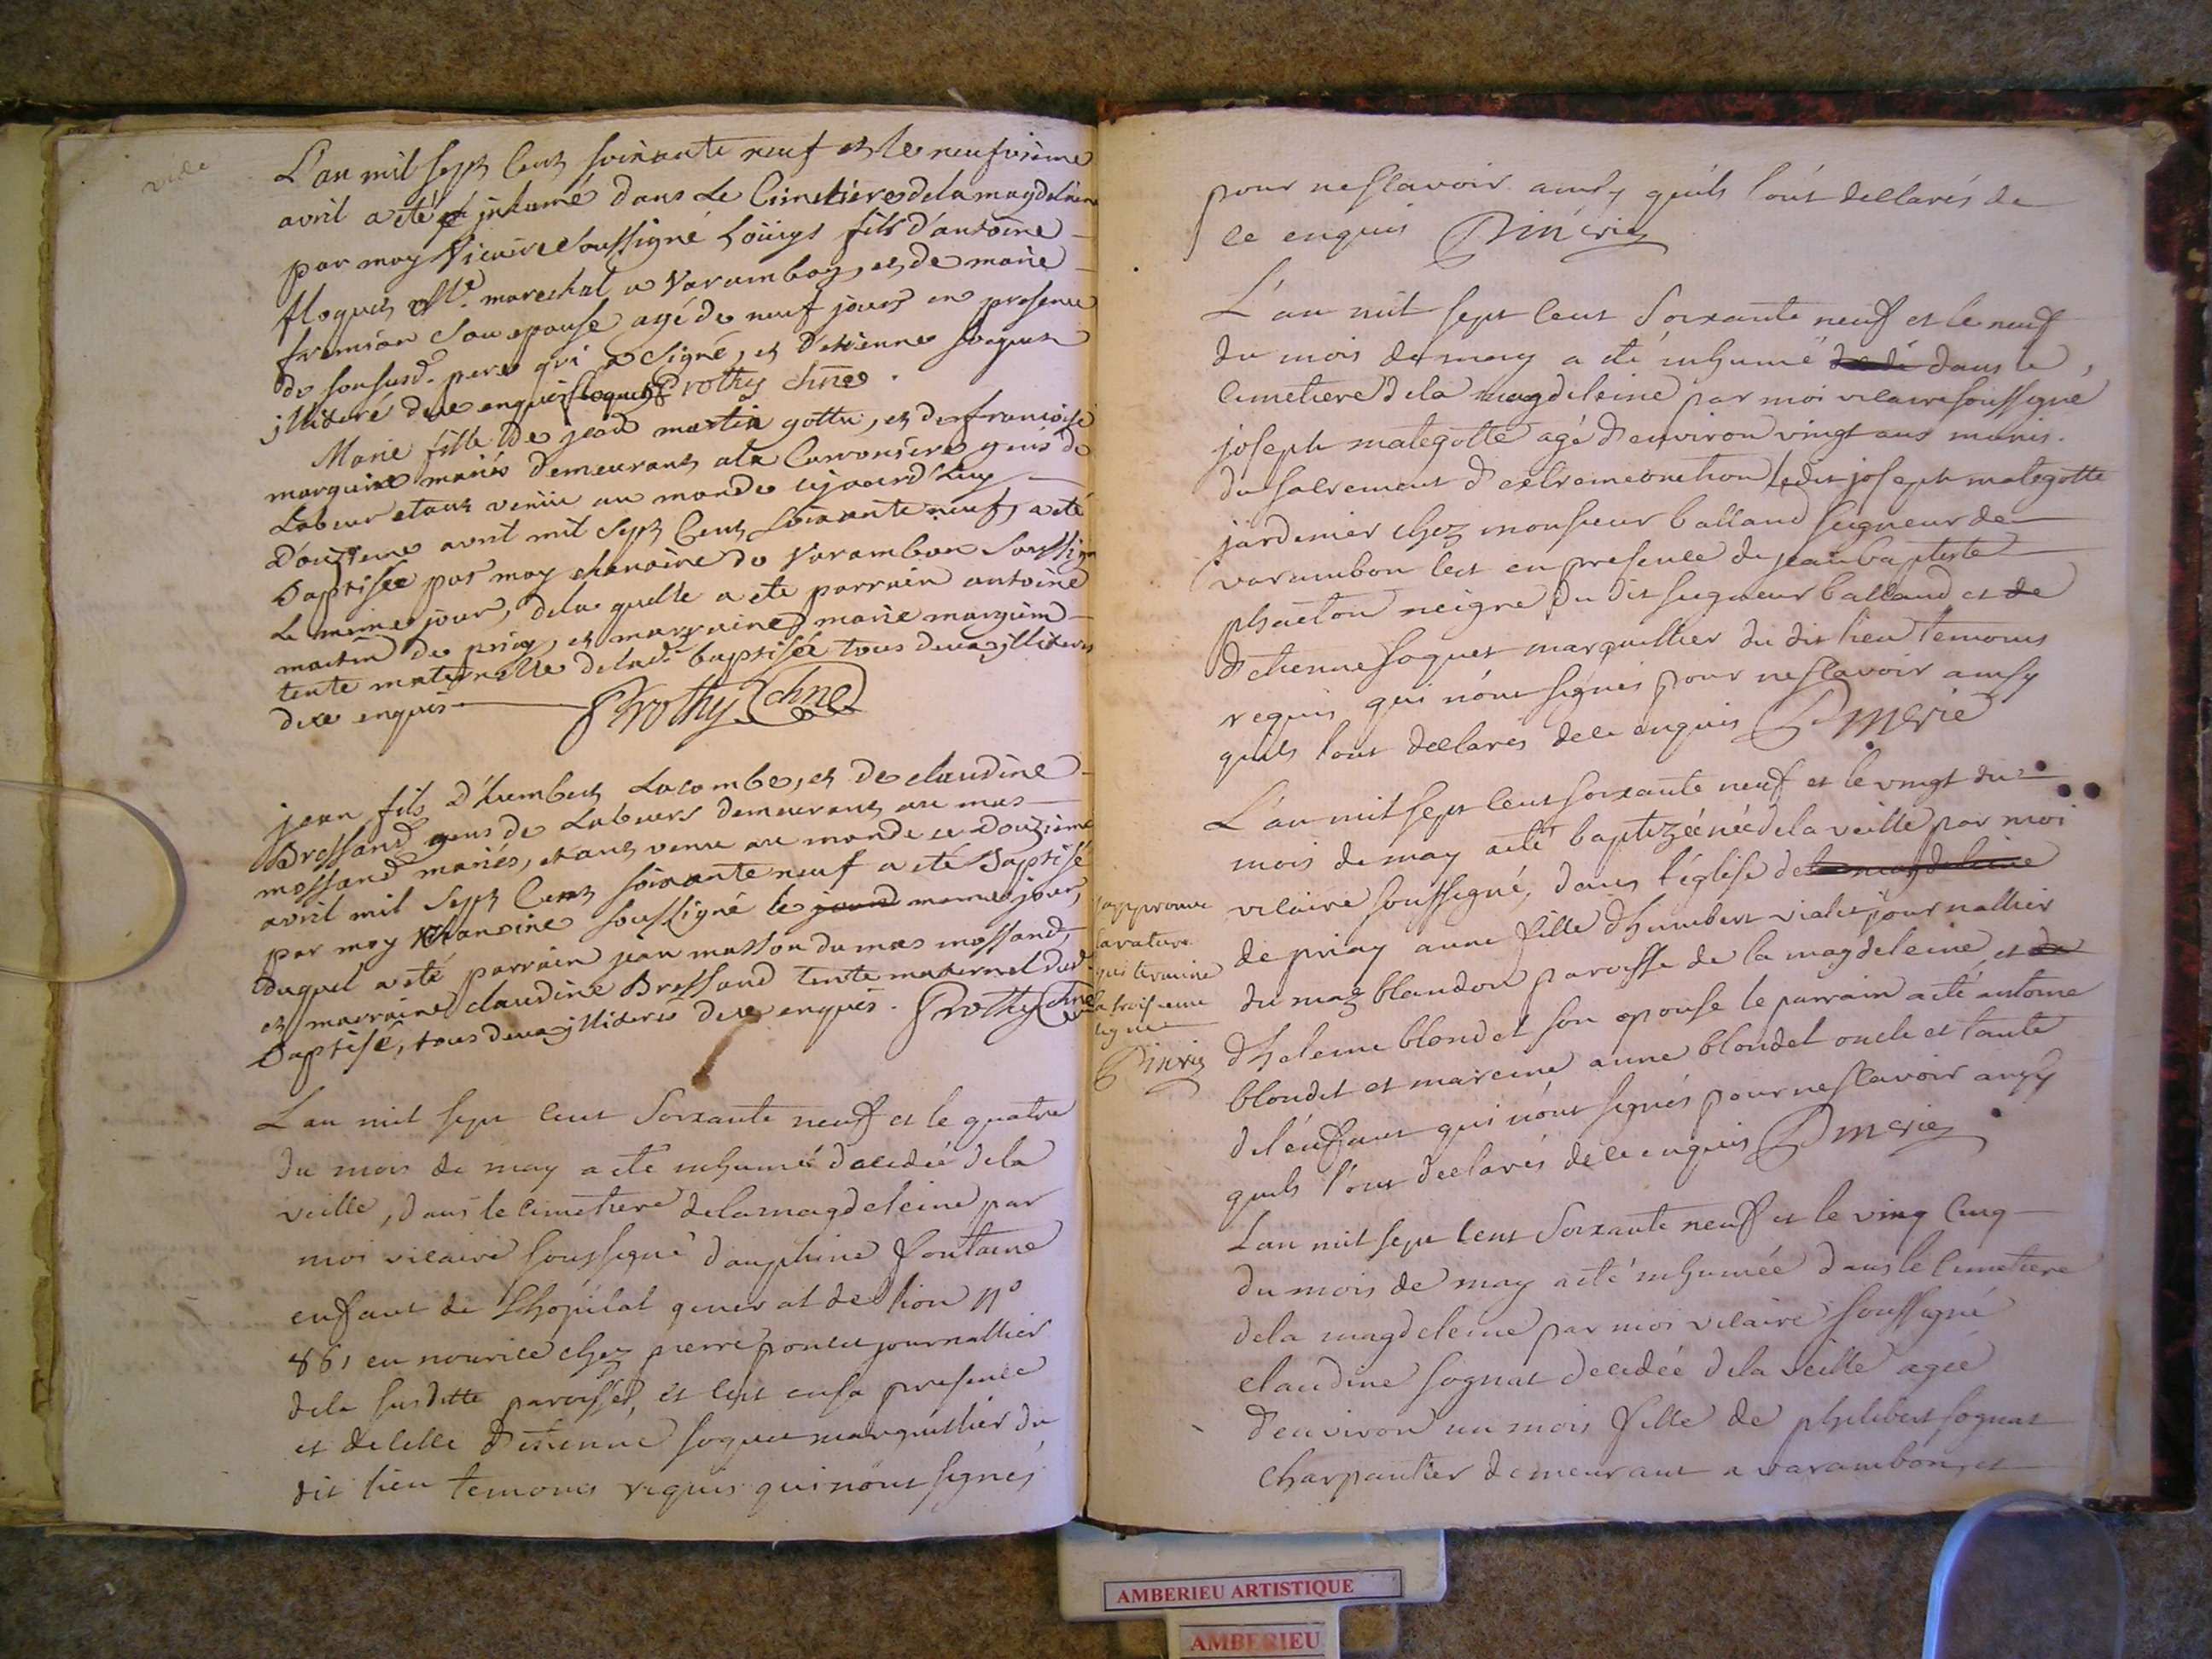 vide
L'an mil sept cent soixante neuf et le neufvieme
avril a eté inhumé dans le Cimetiere de la magdeleine
par moy vicaire soussigné Loüys fils d'antoine
floquet Me. marechal a Varambon, et de marie
fremion son epouse agé de neuf jours en presence
de son susd. pere qui a signé, et d'etienne soquet
jllitéré de ce enquis floquet Prothy chne.
Marie fille de jean martin gottu, et de francoise
marguine mariés demeurants a la Carroniere gens de
Labeur etant venüe au monde cejourd'huy
Douzieme avril mil sept cent soixante neuf, a eté
Baptisée par moy chanoine de Varambon soussigné
le meme jour, de la quelle a ete parrain antoine
martin de priay, et marraine marie marguin
tente maternelle de lad. baptisée tous deux jlliterés
de ce enquis Prothy Chne
jean fils d'humbert Lacombe, et de claudine
Bressand gens de Labeurs demeurants au mas
mossand mariés, etant venu au monde ce Douzieme
avril mil sept cent soixante neuf a eté Baptisé
par moy chanoine soussigné le meme jour,
duquel a eté parrain jean masson du mas mossand,
et marraine claudine Bressand tente maternel dud.
Baptisé, tous deux jlliterés de ce enquis. Prothy Chne
L'an mil sept cent soixante neuf et le quatre
du mois de may a ete inhumée decedée de la
veille, dans le cimetiere de la magdeleine par
moi vicaire soussigné dauphine fontaine
enfant de l'hopital general de lion no
881 en nourice chez pierre poncet journallier
de la susditte paroisse, et cest en sa presence
et de celle d'etienne soquet marguillier du
dit lieu temoins requis qui n'ont signés
pour ne scavoir ainsy quils l'ont declarés de
ce enquis Pinerie
L'an mil sept cent soixante neuf et le neuf
du mois de may a eté inhumé dans le
cimetiere de la magdeleine par moi vicaire soussigné
joseph malegotte agé d'environ vingt ans munis
du sacrement d'extremeonction ledit joseph malegotte
jardinier chez monsieur balland seigneur de
varambon cest en presence de jean baptiste
phaeton neigre du dit seigneur balland et de
d'etienne soquet marguillier du dit lieu temoins
requis qui n'ont signés pour ne scavoir ainsy
quils l'ont declarés de ce enquis Pinerie
L'an mil sept cent soixante neuf et le vingt du
mois de may a eté baptizée née de la veille par moi
vicaire soussigné, dans l'église de la magdeleine
de priay anne fille d'humbert vialet journallier
du maz blandon paroisse de la magdeleine, et de
d'heleine blondet son epouse le parrain a eté antoine
blondet et mareine anne blondet oncle et tante
de l'enffant qui n'ont signés pour ne scavoir ainsy
quils l'ont declarés de ce enquis Pinerie
japprouve
la rature
qui termine
la troisieme
ligne
Pinerie
L'an mil sept cent soixante neuf et le ving cinq
du mois de may a eté inhumée dans le cimetiere
de la magdeleine par moi vicaire soussigné
claudine sognat decedée de la veille agée
d'environ un mois fille de philibert sognat
charpantier demeurant a varambon, et
AMBERIEU ARTISTIQUE
AMBERIEU